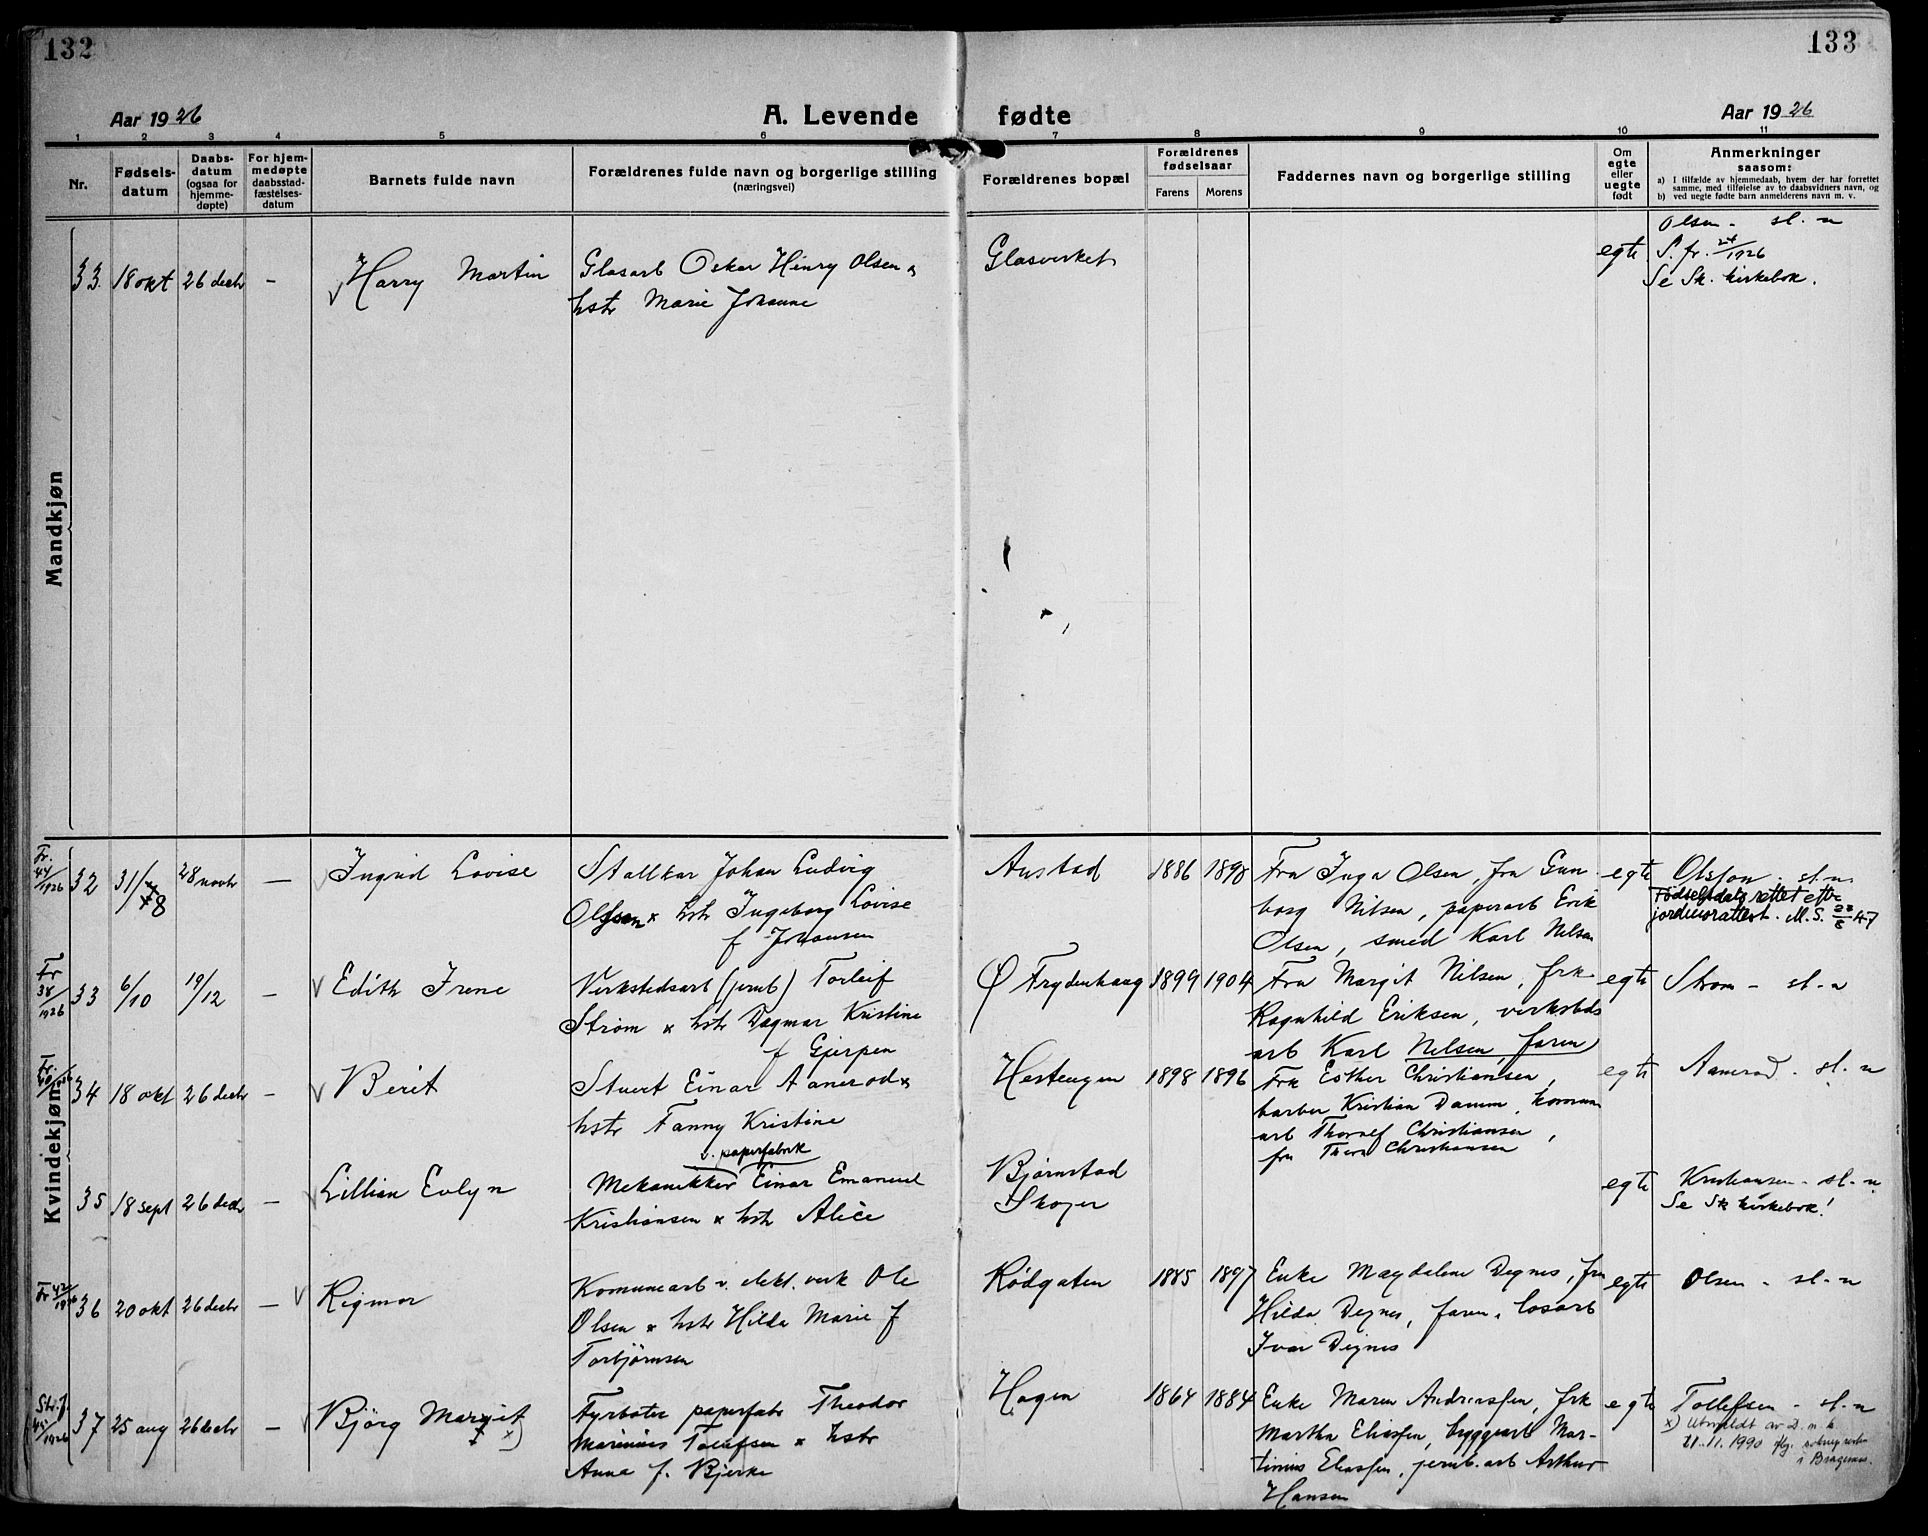 132
133
Aar 1926
A. Levende fødte
Aar 1926
1 2 3 4 5 6 7 8 9 10 11
Nr.
Fødsels-
datum
Daabs-
datum
(ogsaa for
hjemme-
døpte)
For hjem-
medøpte
daabsstad-
fæstelses-
datum
Barnets fulde navn
Forældrenes fulde navn og borgerlige stilling
(næringsvei)
Forældrenes bopæl
Forældrenes
fødselsaar
Farens Morens
Faddernes navn og borgerlige stilling
Om
egte
eller
uegte
født
Anmerkninger
saasom:
a) I tilfælde av hjemmedaab, hvem der har forrettet
samme, med tilføielse av to daabsvidners navn, og
b) ved uegte fødte barn anmelderens navn m. v.
Mandkjøn
33. 18 okt 26 decbr - Harry Martin
Glasarb Oskar Henry Olsen
hstr Marie Johanne
Glasverket
egte
Olsen - sl. n
S. fr. 24/1926
Se Sk. kirkebok.
Kvindekjøn
Fr. 44/1926
32 31/8 28 novbr - Ingrid Lovise
Stallkar Johan Ludvig
Olsson x hstr Ingeborg Lovise
f Johansen
Austad
1886 1898
Fru Inga Olsen, fru Gun-
borg Nilsen, paperarb Erik
Olsen, smed Karl Nilsen
egte
Olsson - sl. n.
Fødselsdato rettet efter
jordmorattest. M.S.
Fr 38/1926
33 6/10 19/12 - Edith Irene
Verkstedsarb (jernb) Torleif
Strøm x hstr Dagmar Kristine
f Gjerpen
Ø Frydenhaug
1899 1904
Fru Margit Nilsen, frk
Ragnhild Eriksen, verksteds
arb Karl Nilsen, faren
egte
Strøm - sl. n
34 18 okt 26 decbr - Berit
Stuert Einar Aanerød x
hstr Fanny Kristine
Hestengen
1898 1896
Frk Esther Christiansen,
barber Kristian Damm, kommun
arb Thoralf Christiansen,
fru Thora Christiansen
egte
Aanerød - sl. n
35 18 sept 26 decbr - Lillian Evlyn
v. paperfabrik
Mekanikker Einar Emanuel
Kristiansen x hstr Alice
Bjørnstad
Skoger
egte
Kristiansen - sl. n
Se Sk kirkebok!
Fr 42/1926
36 20 okt 26 decbr - Rigmor
Komunearb v. elekt. verk Ole
Olsen x hstr Hilda Marie f
Torbjørnsen
Rødgaten
1885 1897
Enke Magdalene Degnes, fru
Hilda Degnes, faren, losarb
Ivar Degnes
egte
Olsen - sl. n
45/1926
37 25 aug 26 decbr - Bjørg Margit x)
Fyrbøter paperfabr Theodor
Marinius Tollefsen x hstr
Anna f. Bjerke
Hagen
1864 1884
Enke Maren Andreassen, frk
Martha Eliassen, bryggearb Mar-
tinius Eliassen, jernb. arb Arthur
Hansen
egte
Tollefsen - sl. n
x) Utmeldt av D.n.k.
21.11.1990
i Bragernes.